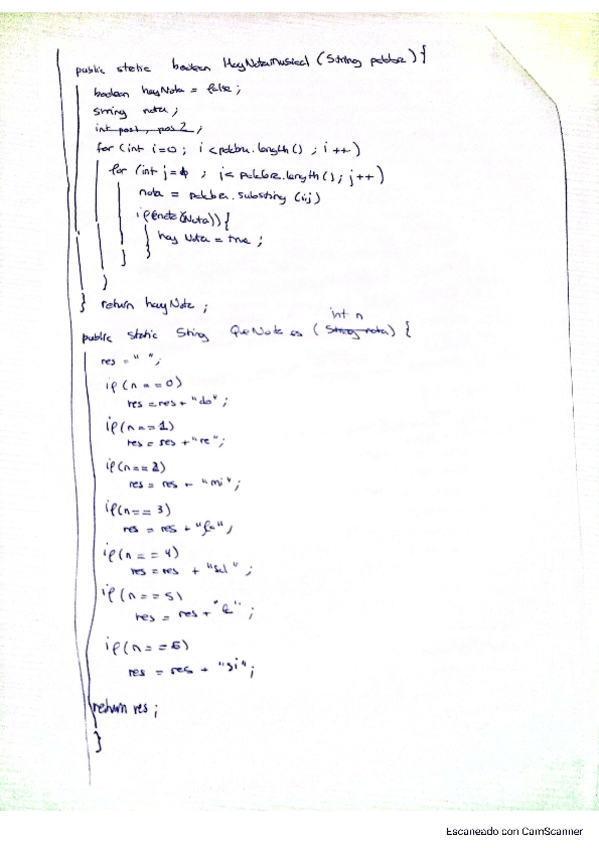 public static boolean HayNotaMusical (String palabra) {
boolean hayNota = false;
string nota;
int pos1, pos2;
for (int i=0; i<palabra.length(); i++)
for (int j=0; j< palabra.length(); j++)
nota = palabra.substring (i,j)
if( (Nota)) {
hay Nota = true;
}
}
}
} return hayNota;
int n
public static String QueNota es (String nota) {
res = " ";
if (n == 0)
res = res + "do";
if (n == 1)
res = res + "re";
if (n == 2)
res = res + "mi";
if (n == 3)
res = res + "fa";
if (n == 4)
res = res + "sol";
if (n == 5)
res = res + "la";
if (n == 6)
res = res + "si";
return res;
}
Escaneado con CamScanner